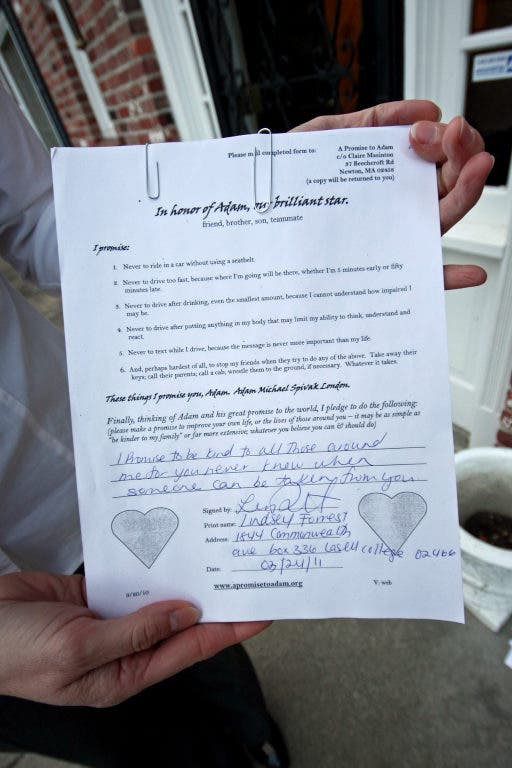 Please mail completed form to:
A Promise to Adam
c/o Claire Masinton
37 Beechcroft Rd
Newton, MA 02458
(a copy will be returned to you)
In honor of Adam, our brilliant star.
friend, brother, son, teammate
I promise:
1. Never to ride in a car without using a seatbelt.
2. Never to drive too fast, because where I'm going will be there, whether I'm 5 minutes early or fifty
minutes late.
3. Never to drive after drinking, even the smallest amount, because I cannot understand how impaired I
may be.
4. Never to drive after putting anything in my body that may limit my ability to think, understand and
react.
5. Never to text while I drive, because the message is never more important than my life.
6. And, perhaps hardest of all, to stop my friends when they try to do any of the above. Take away their
keys; call their parents; call a cab, wrestle them to the ground, if necessary. Whatever it takes.
These things I promise you, Adam. Adam Michael Spivak London.
Finally, thinking of Adam and his great promise to the world, I pledge to do the following:
(please make a promise to improve your own life, or the lives of those around you – it may be as simple as
"be kinder to my family" or far more extensive; whatever you believe you can & should do)
I Promise to be kind to all those around
me for you never know when
someone can be taken from you
Signed by:
Print name: Lindsey Forrest
Address: 1844 Commonwealth
ave box 336 Lasell college 02466
Date: 03/24/11
www.apromisetoadam.org
V: web